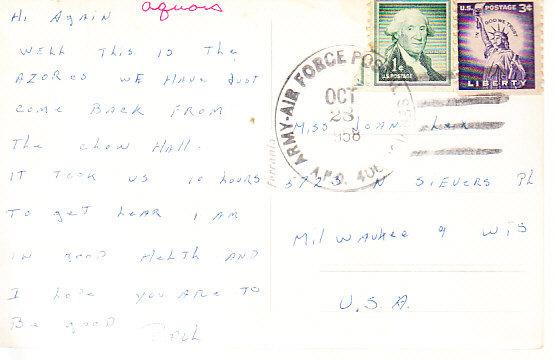 aquors
Hi Again
Well This is The
Azores we Have Just
come Back From
The chow Hall.
IT Took us 10 hours
To get hear I Am
in good Health AND
I hope you Are To
Be good
U.S. POSTAGE 1¢
U.S. POSTAGE 3¢
IN GOD WE TRUST
LIBERTY
ARMY-AIR FORCE POSTAL SERVICE
OCT
23
1958
A.P.O. 406
Miss Joan
5723 N Sievers Pl
Milwaukee 9 Wis
U.S.A.
Ferrania